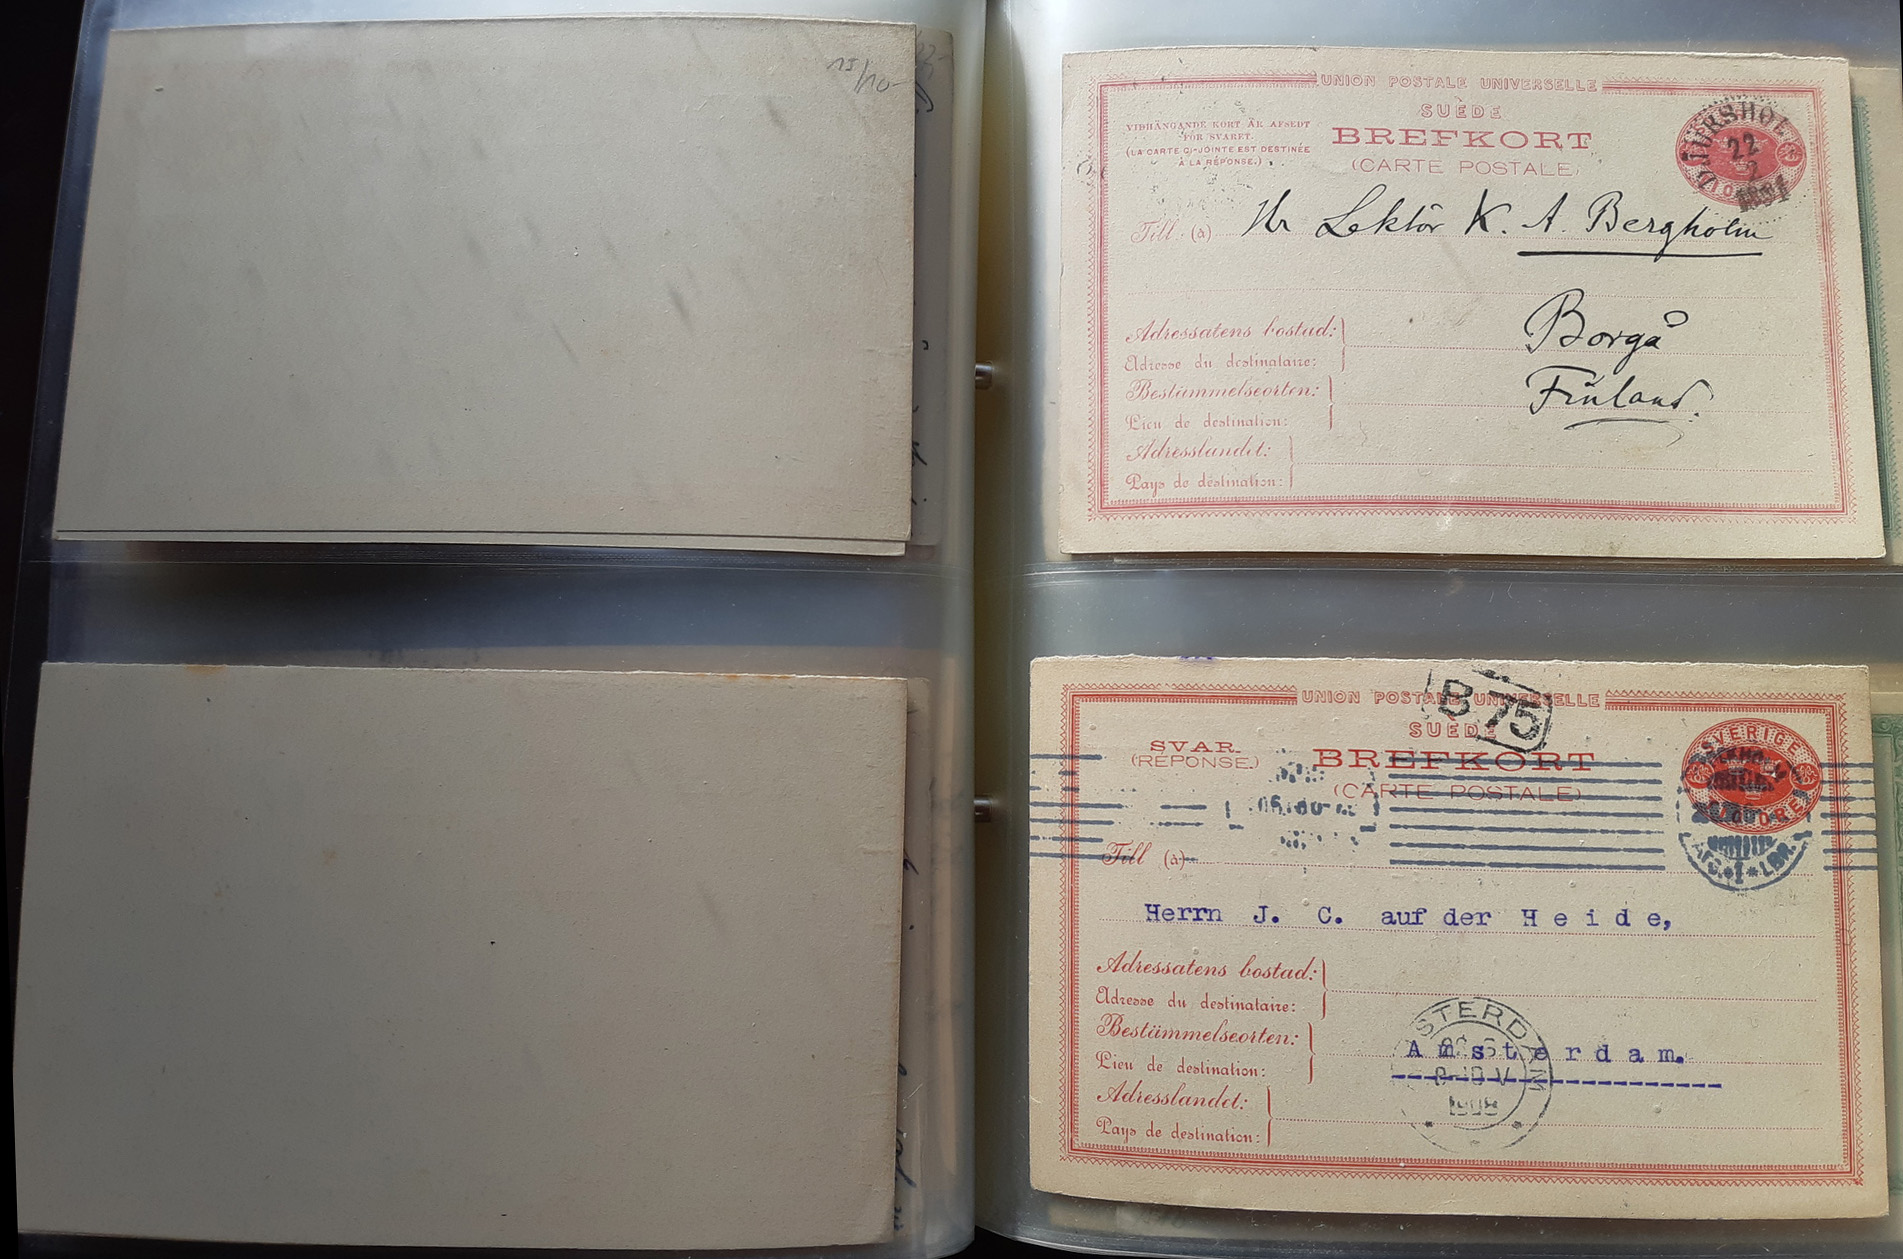 UNION POSTALE UNIVERSELLE
SUÈDE
VIDHÄNGANDE KORT ÄR AFSEDT
FÖR SVARET.
(LA CARTE CI-JOINTE EST DESTINÉE
À LA RÉPONSE.)
BREFKORT
(CARTE POSTALE)
DJURSHOLM
22
Till (à) Hr Lektor K. A. Bergholm
Borgå
Finland.
Adressatens bostad:
Adresse du destinataire:
Bestämmelseorten:
Lieu de destination:
Adresslandet:
Pays de destination:
UNION POSTALE UNIVERSELLE
B 75
SUÈDE
SVAR
(RÉPONSE)
BREFKORT
(CARTE POSTALE)
SVERIGE
Till (à)
Herrn J. C. auf der Heide,
Adressatens bostad:
Adresse du destinataire:
Bestämmelseorten:
Lieu de destination:
Amsterdam.
1908
Adresslandet:
Pays de destination: